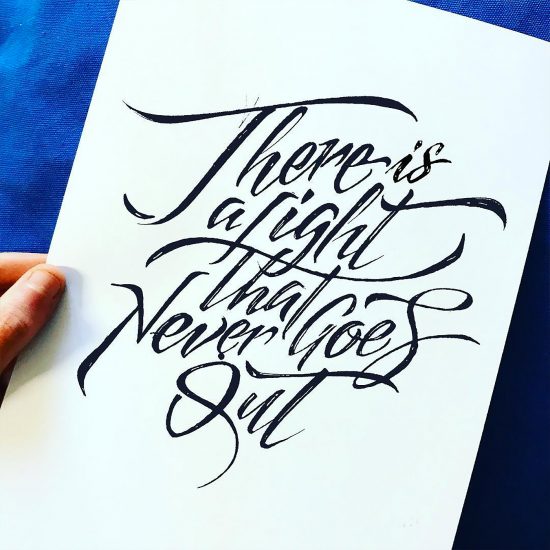 There is
a Light
that
Never Goes
Out